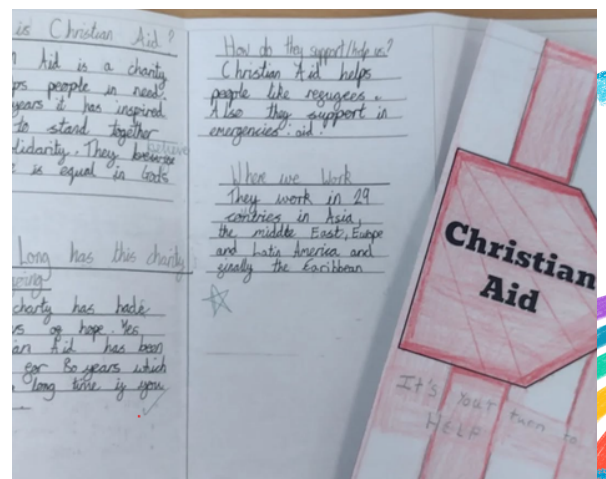 is Christian Aid?
Aid is a charity
ps people in need.
years it has inspired
to stand together
lidarity. They believe
is equal in Gods
Long has this charity
going
charty has had
of hope. Yes
an Aid has been
for 80 years which
long time if you
How do they support/help us?
Christian Aid helps
people like refugees.
Also they support in
emergencies. aid.
Where we Work
They work in 29
contries in Asia,
the middle East, Europe
and Latin America and
finally the Caribbean
Christian
Aid
It's your turn to
HELP